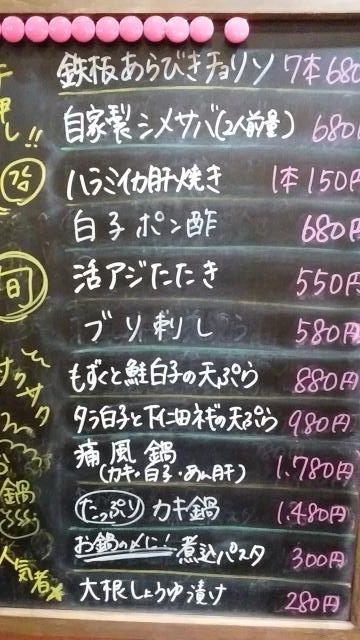 鉄板あらびきチョリソ 7本 680
押し!!
自家製シメサバ(2人前量) 680
ハラミイカ肝焼き 1本 150円
白子ポン酢 680円
旬
活アジたたき 550円
ブリ刺し 580円
サクサク
もずくと鮭白子の天ぷら 880円
タラ白子と下仁田ネギの天ぷら 980円
痛風鍋 1.780円
(カキ・白子・あん肝)
鍋
たっぷり カキ鍋 1.480円
お鍋の〆に! 煮込パスタ 300円
人気者
大根しょうゆ漬け 280円